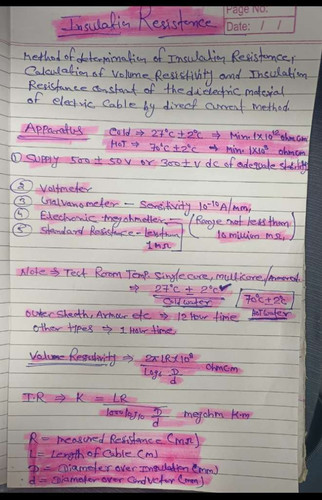 Page No.
Date: / /
Insulation Resistance
Method of determination of Insulation Resistance,
Calculation of Volume Resistivity and Insulation
Resistance constant of the dielectric material
of electric Cable by direct current Method
Apparatus Cold ⇒ 27°C ± 2°C ⇒ Min 1×10¹⁰ ohm cm
HOT ⇒ 70°C ± 2°C ⇒ Min 1×10 ohmcm
① Supply 500 ± 50 V or 300 ± V dc of adequate
② Voltmeter
③ Galvanometer - Sensitivity 10⁻¹⁰ A/mm,
④ Electronic megohmmeter (Range not less than
⑤ Standard Resistance - 1 mΩ 10 million mΩ)
Note ⇒ Test Room Temp. Single core, multicore /
⇒ 27°C ± 2°C ✓ 70°C ± 2°C
Cold water Hot water
Outer sheath, Armour etc ⇒ 12 Hour time
other types ⇒ 1 Hour time.
Volume Resistivity ⇒ 2π LR×10⁸ / loge D/d ohmcm
I.R ⇒ K = LR / 1000 log10 D/d megohm km
R = Measured Resistance (mΩ)
L = Length of Cable (m)
D = Diameter over Insulation (mm)
d = Diameter over Conductor (mm)